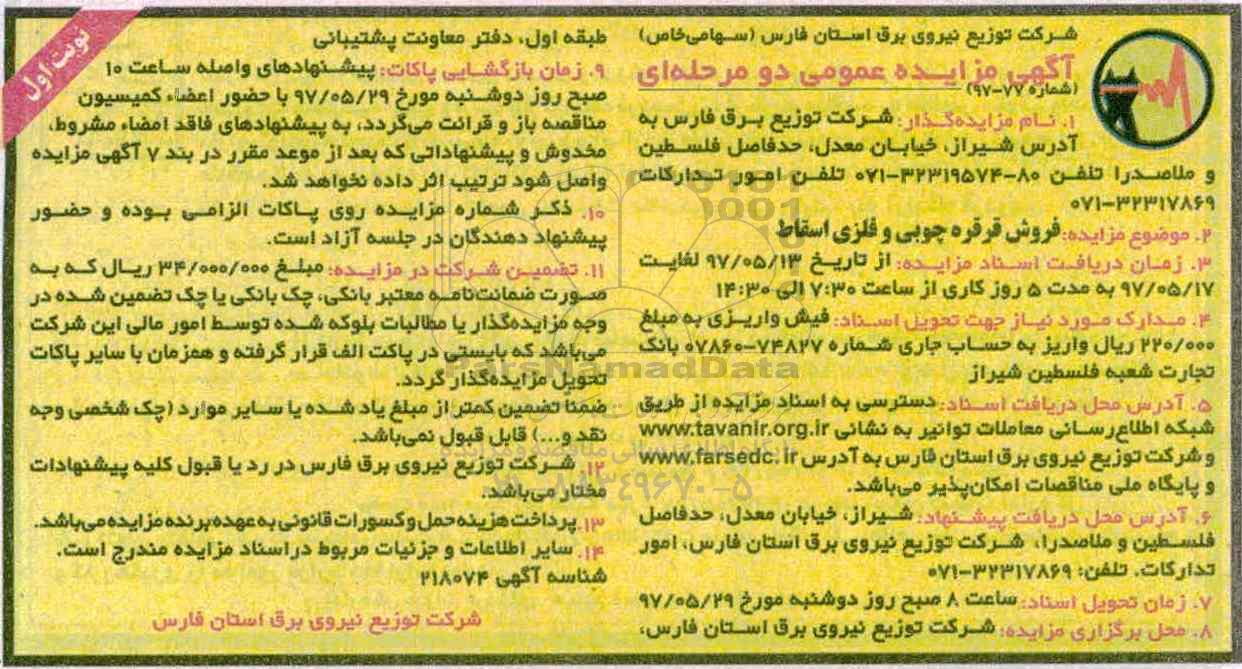 نوبت اول
شرکت توزیع نیروی برق استان فارس (سهامی‌خاص)
آگهی مزایده عمومی دو مرحله‌ای
(شماره ۷۷-۹۷)
۱. نـام مزایده‌گـذار: شرکت توزیع بـرق فارس به
آدرس شـیراز، خیابـان معدل، حدفاصل فلسـطین
و ملاصـدرا تلفـن ۸۰-۳۲۳۱۹۵۷۴-۰۷۱ تلفـن امور تـدارکات
۰۷۱-۳۲۳۱۷۸۶۹
۲. موضوع مزایده: فروش قرقره چوبی و فلزی اسقاط
۳. زمـان دریافـت اسـناد مزایـده: از تاریخ ۹۷/۰۵/۱۳ لغایت
۹۷/۰۵/۱۷ به مدت ۵ روز کاری از ساعت ۷:۳۰ الی ۱۴:۳۰
۴. مـدارک مـورد نیـاز جهت تحویل اسـناد: فیش واریـزی به مبلغ
۲۲۰/۰۰۰ ریال واریز به حساب جاری شـماره ۷۴۸۲۷-۰۷۸۶۰ بانک
تجارت شعبه فلسطین شیراز
۵. آدرس محل دریافت اسـناد: دسترسی به اسناد مزایده از طریق
شبکه اطلاع‌رسـانی معاملات توانیر به نشانی www.tavanir.org.ir
و شرکت توزیع نیروی برق استان فارس به آدرس www.farsedc.ir
و پایگاه ملی مناقصات امکان‌پذیر می‌باشد.
۶. آدرس محل دریافت پیشـنهاد: شـیراز، خیابان معدل، حدفاصل
فلسـطین و ملاصدرا، شـرکت توزیع نیروی برق استان فارس، امور
تدارکات. تلفن: ۳۲۳۱۷۸۶۹-۰۷۱
۷. زمان تحویل اسناد: ساعت ۸ صبح روز دوشنبه مورخ ۹۷/۰۵/۲۹
۸. محل برگزاری مزایده: شـرکت توزیع نیروی برق اسـتان فارس،
طبقه اول، دفتر معاونت پشتیبانی
۹. زمان بازگشـایی پاکات: پیشـنهادهای واصله سـاعت ۱۰
صبح روز دوشـنبه مورخ ۹۷/۰۵/۲۹ با حضور اعضاء کمیسیون
مناقصه باز و قرائت می‌گردد، به پیشنهادهای فاقد امضاء مشروط،
مخدوش و پیشنهاداتی که بعد از موعد مقرر در بند ۷ آگهی مزایده
واصل شود ترتیب اثر داده نخواهد شد.
۱۰. ذکـر شـماره مزایـده روی پـاکات الزامـی بـوده و حضـور
پیشنهاد دهندگان در جلسه آزاد است.
۱۱. تضمیـن شـرکت در مزایـده: مبلـغ ۳۴/۰۰۰/۰۰۰ ریـال کـه بـه
صـورت ضمانت‌نامـه معتبر بانکی، چک بانکی یا چک تضمین شـده در
وجه مزایده‌گذار یا مطالبات بلوکه شـده توسـط امور مالی این شرکت
می‌باشد که بایستی در پاکت الف قرار گرفته و همزمان با سایر پاکات
تحویل مزایده‌گذار گردد.
ضمناً تضمین کمتر از مبلغ یاد شـده یا سـایر موارد (چک شخصی وجه
نقد و...) قابل قبول نمی‌باشد.
۱۲. شـرکت توزیع نیروی برق فارس در رد یا قبول کلیه پیشنهادات
مختار می‌باشد.
۱۳. پرداخت هزینه حمل و کسورات قانونی به عهده برنده مزایده می‌باشد.
۱۴. سایر اطلاعات و جزئیات مربوط در اسناد مزایده مندرج است.
شناسه آگهی ۲۱۸۰۷۴
شرکت توزیع نیروی برق استان فارس
ParsNamadData
۰۲۱-۸۸۳۴۹۶۷۰-۵